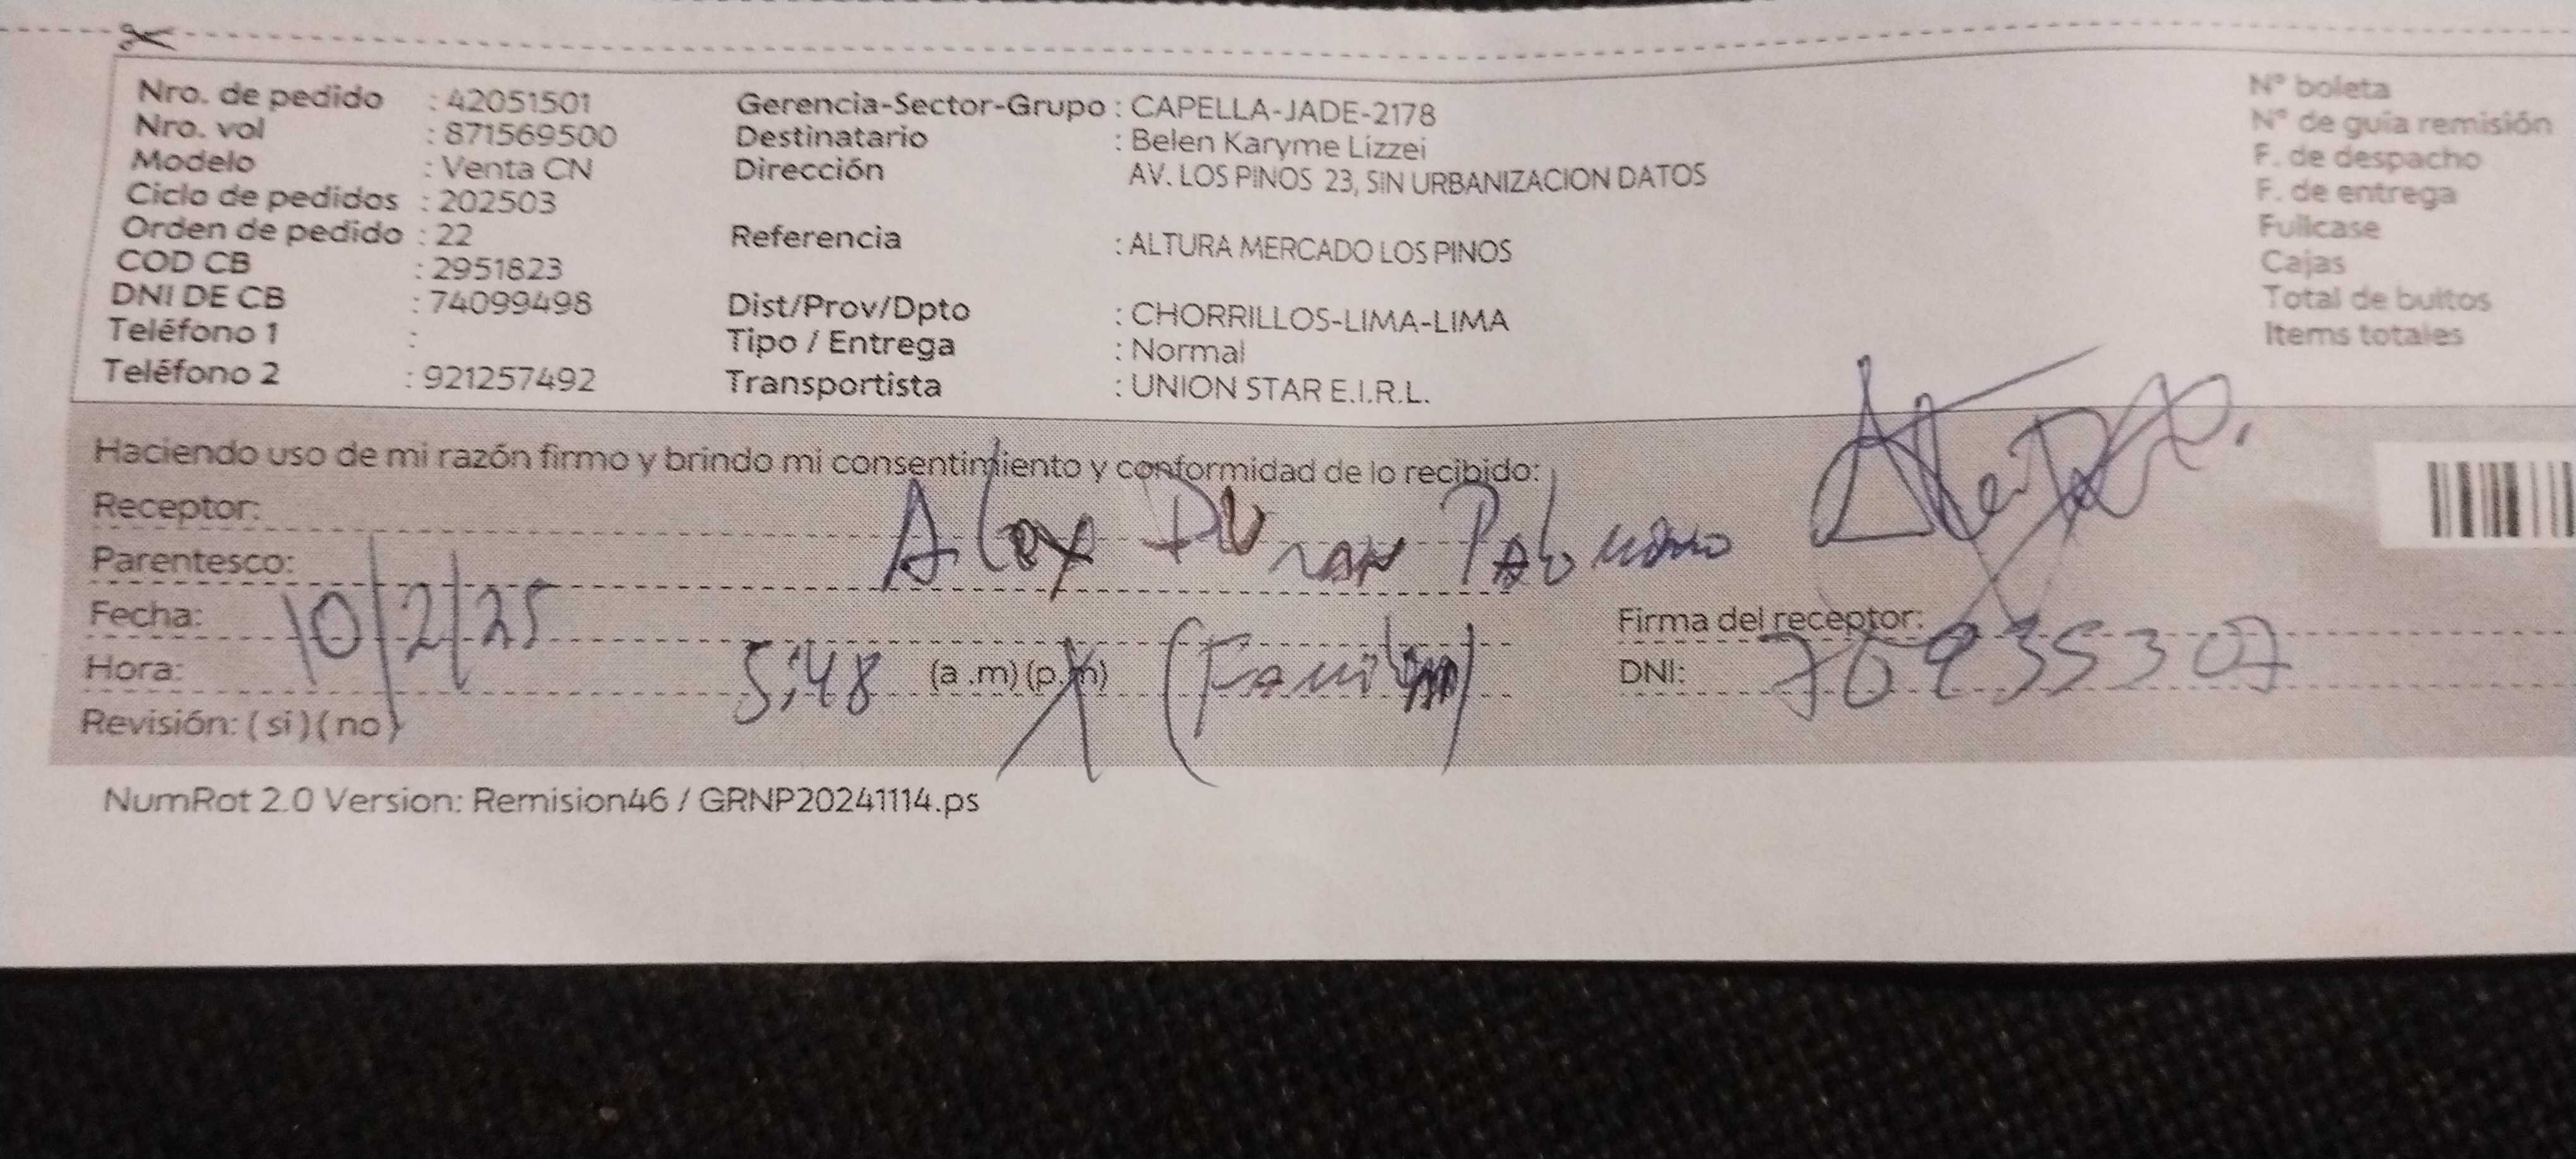 Nro. de pedido : 42051501
Nro. vol : 871569500
Modelo : Venta CN
Ciclo de pedidos : 202503
Orden de pedido : 22
COD CB : 2951823
DNI DE CB : 74099498
Teléfono 1 :
Teléfono 2 : 921257492
Gerencia-Sector-Grupo : CAPELLA-JADE-2178
Destinatario : Belen Karyme Lizzei
Dirección AV. LOS PINOS 23, SIN URBANIZACION DATOS
Referencia : ALTURA MERCADO LOS PINOS
Dist/Prov/Dpto : CHORRILLOS-LIMA-LIMA
Tipo / Entrega : Normal
Transportista : UNION STAR E.I.R.L.
N° boleta
N° de guía remisión
F. de despacho
F. de entrega
Fullcase
Cajas
Total de bultos
Items totales
Haciendo uso de mi razón firmo y brindo mi consentimiento y conformidad de lo recibido:
Receptor: Alex Duran Palomino
Parentesco:
Fecha: 10/2/25
Firma del receptor:
Hora: 5:48 (a.m) (p.m)
DNI: 70935307
Revisión: (si) (no)
NumRot 2.0 Version: Remision46 / GRNP20241114.ps